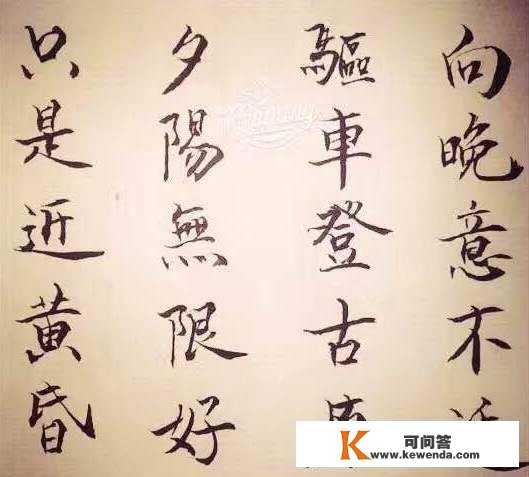 向晚意不
驅車登古
夕陽無限好
只是近黄昏
K 可问答
www.kewenda.com